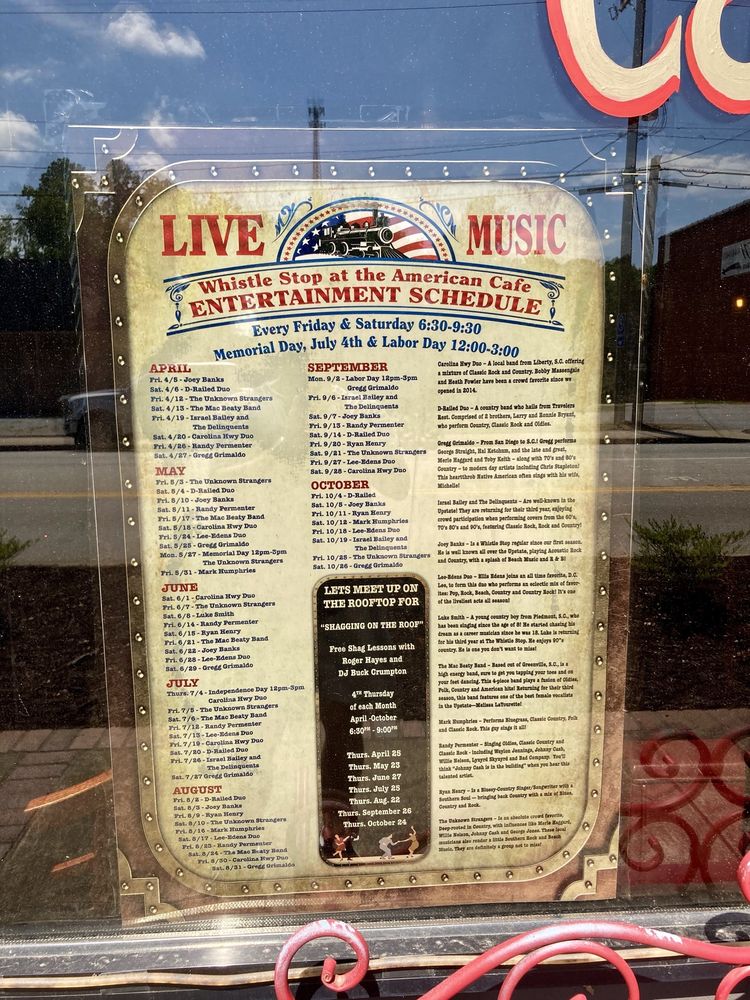 LIVE MUSIC
Whistle Stop at the American Cafe
ENTERTAINMENT SCHEDULE
Every Friday & Saturday 6:30-9:30
Memorial Day, July 4th & Labor Day 12:00-3:00
APRIL
Fri. 4/5 - Joey Banks
Sat. 4/6 - D-Railed Duo
Fri. 4/12 - The Unknown Strangers
Sat. 4/13 - The Mac Beaty Band
Fri. 4/19 - Israel Bailey and
The Delinquents
Sat. 4/20 - Carolina Hwy Duo
Fri. 4/26 - Randy Permenter
Sat. 4/27 - Gregg Grimaldo
MAY
Fri. 5/3 - The Unknown Strangers
Sat. 5/4 - D-Railed Duo
Fri. 5/10 - Joey Banks
Sat. 5/11 - Randy Permenter
Fri. 5/17 - The Mac Beaty Band
Sat. 5/18 - Carolina Hwy Duo
Fri. 5/24 - Lee-Edens Duo
Sat. 5/25 - Gregg Grimaldo
Mon. 5/27 - Memorial Day 12pm-3pm
The Unknown Strangers
Fri. 5/31 - Mark Humphries
JUNE
Sat. 6/1 - Carolina Hwy Duo
Fri. 6/7 - The Unknown Strangers
Sat. 6/8 - Luke Smith
Fri. 6/14 - Randy Permenter
Sat. 6/15 - Ryan Henry
Fri. 6/21 - The Mac Beaty Band
Sat. 6/22 - Joey Banks
Fri. 6/28 - Lee-Edens Duo
Sat. 6/29 - Gregg Grimaldo
JULY
Thurs. 7/4 - Independence Day 12pm-3pm
Carolina Hwy Duo
Fri. 7/5 - The Unknown Strangers
Sat. 7/6 - The Mac Beaty Band
Fri. 7/12 - Randy Permenter
Sat. 7/13 - Lee-Edens Duo
Fri. 7/19 - Carolina Hwy Duo
Sat. 7/20 - D-Railed Duo
Fri. 7/26 - Israel Bailey and
The Delinquents
Sat. 7/27 Gregg Grimaldo
AUGUST
Fri. 8/2 - D-Railed Duo
Sat. 8/3 - Joey Banks
Fri. 8/9 - Ryan Henry
Sat. 8/10 - The Unknown Strangers
Fri. 8/16 - Mark Humphries
Sat. 8/17 - Lee-Edens Duo
Fri. 8/23 - Randy Permenter
Sat. 8/24 - The Mac Beaty Band
Fri. 8/30 - Carolina Hwy Duo
Sat. 8/31 - Gregg Grimaldo
SEPTEMBER
Mon. 9/2 - Labor Day 12pm-3pm
Gregg Grimaldo
Fri. 9/6 - Israel Bailey and
The Delinquents
Sat. 9/7 - Joey Banks
Fri. 9/13 - Randy Permenter
Sat. 9/14 - D-Railed Duo
Fri. 9/20 - Ryan Henry
Sat. 9/21 - The Unknown Strangers
Fri. 9/27 - Lee-Edens Duo
Sat. 9/28 - Carolina Hwy Duo
OCTOBER
Fri. 10/4 - D-Railed
Sat. 10/5 - Joey Banks
Fri. 10/11 - Ryan Henry
Sat. 10/12 - Mark Humphries
Fri. 10/18 - Lee-Edens Duo
Sat. 10/19 - Israel Bailey and
The Delinquents
Fri. 10/25 - The Unknown Strangers
Sat. 10/26 - Gregg Grimaldo
LETS MEET UP ON
THE ROOFTOP FOR
"SHAGGING ON THE ROOF"
Free Shag Lessons with
Roger Hayes and
DJ Buck Crumpton
4TH Thursday
of each Month
April -October
6:30PM - 9:00PM
Thurs. April 25
Thurs. May 23
Thurs. June 27
Thurs. July 25
Thurs. Aug. 22
Thurs. September 26
Thurs. October 24
Carolina Hwy Duo – A local band from Liberty, S.C. offering
a mixture of Classic Rock and Country. Bobby Massengale
and Heath Fowler have been a crowd favorite since we
opened in 2014.
D-Railed Duo – A country band who hails from Travelers
Rest. Comprised of 2 brothers, Larry and Ronnie Bryant,
who perform Country, Classic Rock and Oldies.
Gregg Grimaldo – From San Diego to S.C.! Gregg performs
George Straight, Hal Ketchum, and the late and great,
Merle Haggard and Toby Keith – along with 70's and 80's
Country – to modern day artists including Chris Stapleton!
This heartthrob Native American often sings with his wife,
Michelle!
Israel Bailey and The Delinquents – Are well-known in the
Upstate! They are returning for their third year, enjoying
crowd participation when performing covers from the 60's,
70's 80's and 90's, featuring Classic Rock, Rock and Country!
Joey Banks – Is a Whistle Stop regular since our first season.
He is well known all over the Upstate, playing Acoustic Rock
and Country, with a splash of Beach Music and R & B!
Lee-Edens Duo – Ellis Edens joins an all time favorite, D.C.
Lee, to form this duo who performs an eclectic mix of favor-
ites: Pop, Rock, Beach, Country and Country Rock! It's one
of the liveliest acts all season!
Luke Smith – A young country boy from Piedmont, S.C., who
has been singing since the age of 8! He started chasing his
dream as a career musician since he was 18. Luke is returning
for his third year at The Whistle Stop. He enjoys 90's
country. He is one you don't want to miss!
The Mac Beaty Band – Based out of Greenville, S.C., is a
high energy band, sure to get you tapping your toes and on
your feet dancing. This 4-piece band plays a fusion of Oldies,
Folk, Country and American hits! Returning for their third
season, this band features one of the best female vocalists
in the Upstate—Melissa LaTourette!
Mark Humphries – Performs Bluegrass, Classic Country, Folk
and Classic Rock. This guy sings it all!
Randy Permenter – Singing Oldies, Classic Country and
Classic Rock - including Waylon Jennings, Johnny Cash,
Willie Nelson, Lynyrd Skynyrd and Bad Company. You'll
think "Johnny Cash is in the building" when you hear this
talented artist.
Ryan Henry – Is a Bluesy-Country Singer/Songwriter with a
Southern Soul — bringing back Country with a mix of Blues,
Country and Rock.
The Unknown Strangers – Is an absolute crowd favorite.
Deep-rooted in Country, with influences like Merle Haggard,
Willie Nelson, Johnny Cash and George Jones. These local
musicians also render a little Southern Rock and Beach
Music. They are definitely a group not to miss!